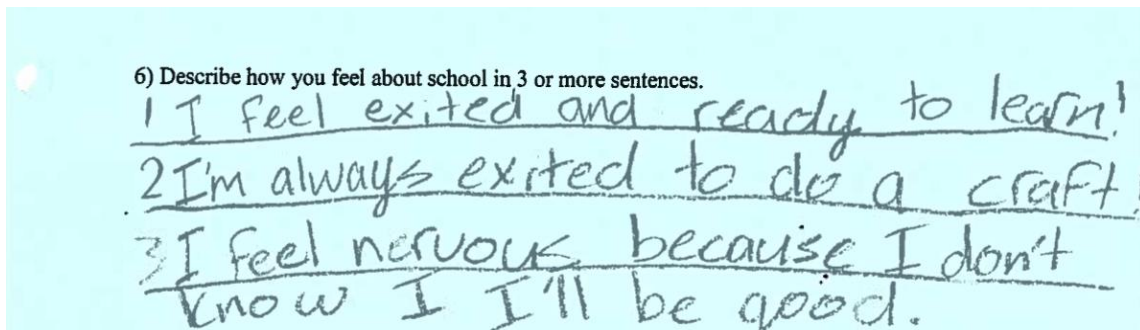 6) Describe how you feel about school in 3 or more sentences.
1 I feel exited and ready to learn!
2 I'm always exited to do a craft!
3 I feel nervous because I don't
know I I'll be good.